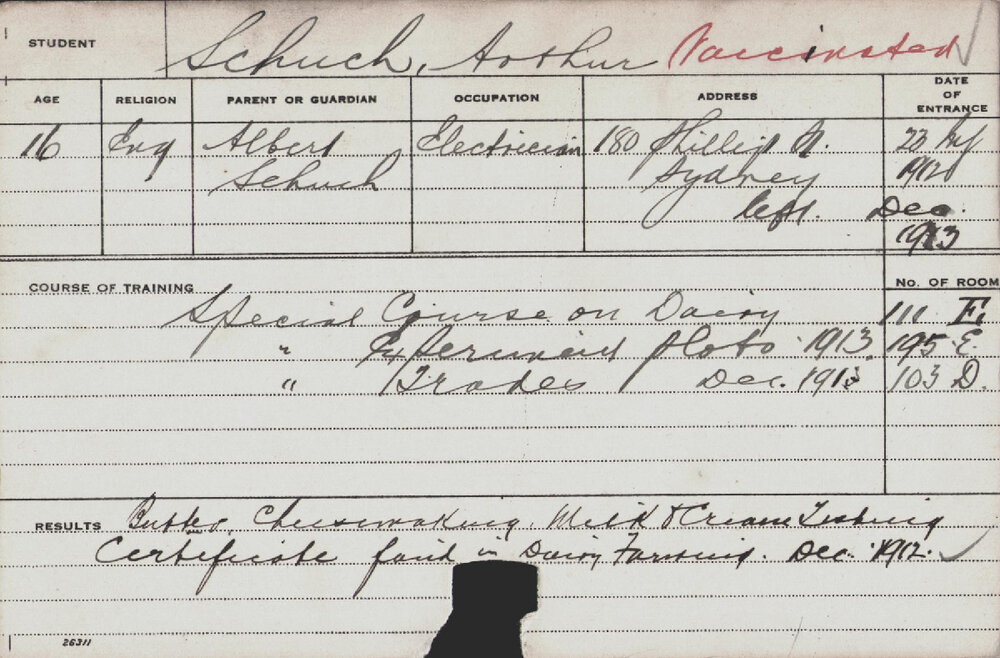 STUDENT Schuch, Arthur Vaccinated
AGE RELIGION PARENT OR GUARDIAN OCCUPATION ADDRESS DATE OF ENTRANCE
16 Eng Albert Electrician 180 Phillip St. 23
Schuch Sydney 1912
left. Dec.
1913
COURSE OF TRAINING No. OF ROOM
Special Course on Dairy 111 E.
" Experiment Plots 1913. 195 E.
" Trades Dec. 1913 103 D.
RESULTS Butter, Cheesemaking, Milk & Cream Testing
Certificate in Dairy Farming. Dec. 1912.
26311